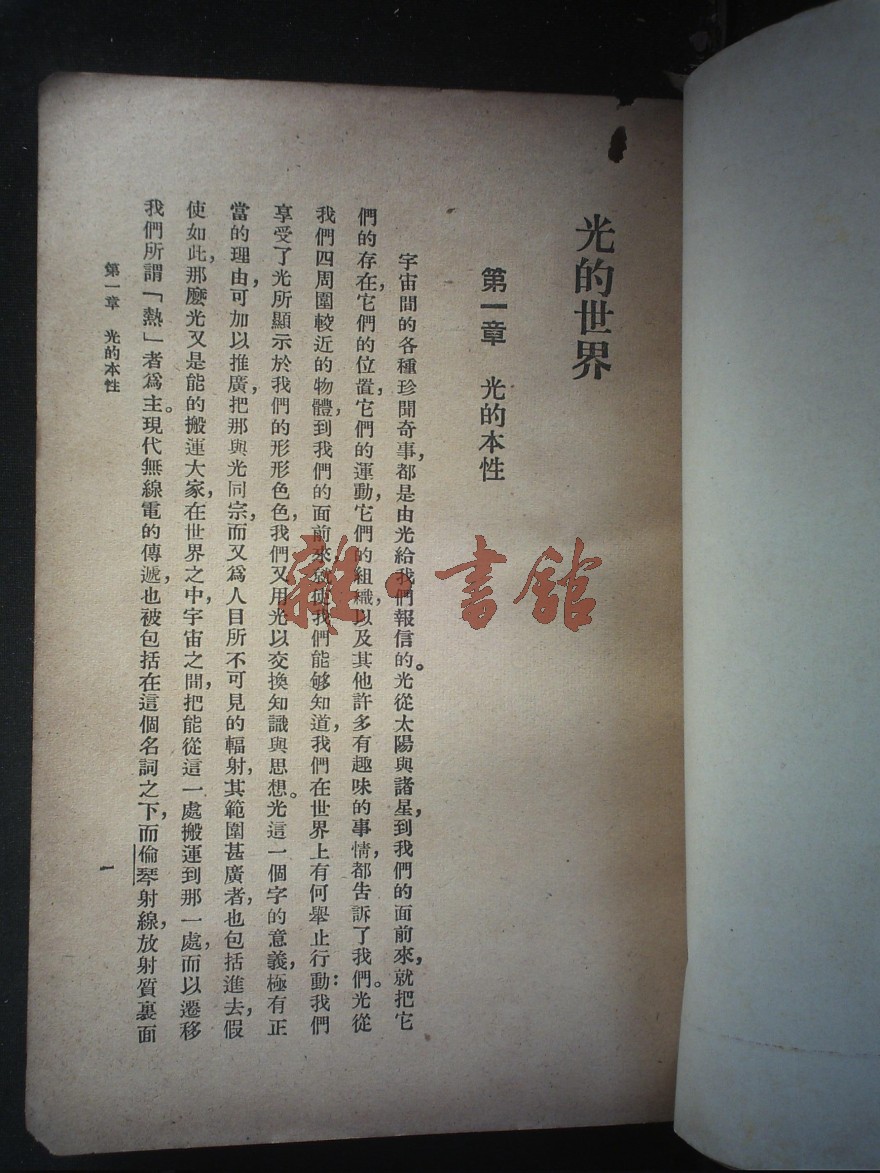 光的世界
第一章 光的本性
宇宙間的各種珍聞奇事,都是由光給我們報信的。光從太陽與諸星,到我們的面前來,就把它
們的存在,它們的位置,它們的運動,它們的組織,以及其他許多有趣味的事情,都告訴了我們。光從
我們四周圍較近的物體,到我們的面前來,就使我們能够知道,我們在世界上有何舉止行動:我們
享受了光所顯示於我們的形形色色,我們又用光以交換知識與思想。光這一個字的意義,極有正
當的理由,可加以推廣,把那與光同宗,而又爲人目所不可見的輻射,其範圍甚廣者,也包括進去,假
使如此,那麼光又是能的搬運大家,在世界之中,宇宙之間,把能從這一處搬運到那一處,而以遷移
我們所謂「熱」者爲主。現代無線電的傳遞,也被包括在這個名詞之下,而倫琴射線,放射質裏面
第一章 光的本性
一
雜·書館